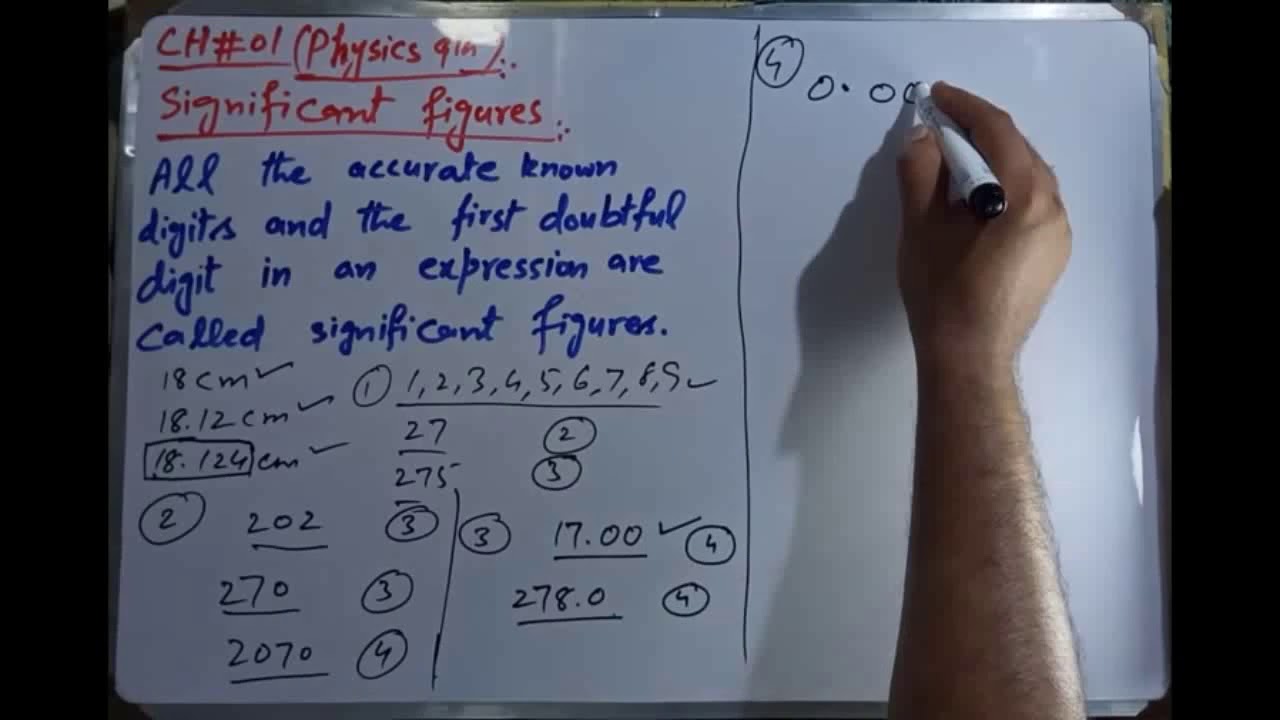 CH#01 (Physics 9th).
Significant figures.
All the accurate known
digits and the first doubtful
digit in an expression are
called significant figures.
18cm ✓
18.12cm ✓
18.124 cm ✓
① 1,2,3,4,5,6,7,8,9 ✓
27 ②
275 ③
② 202 ③
270 ③
2070 ④
③ 17.00 ✓ ④
278.0 ④
④ 0.00